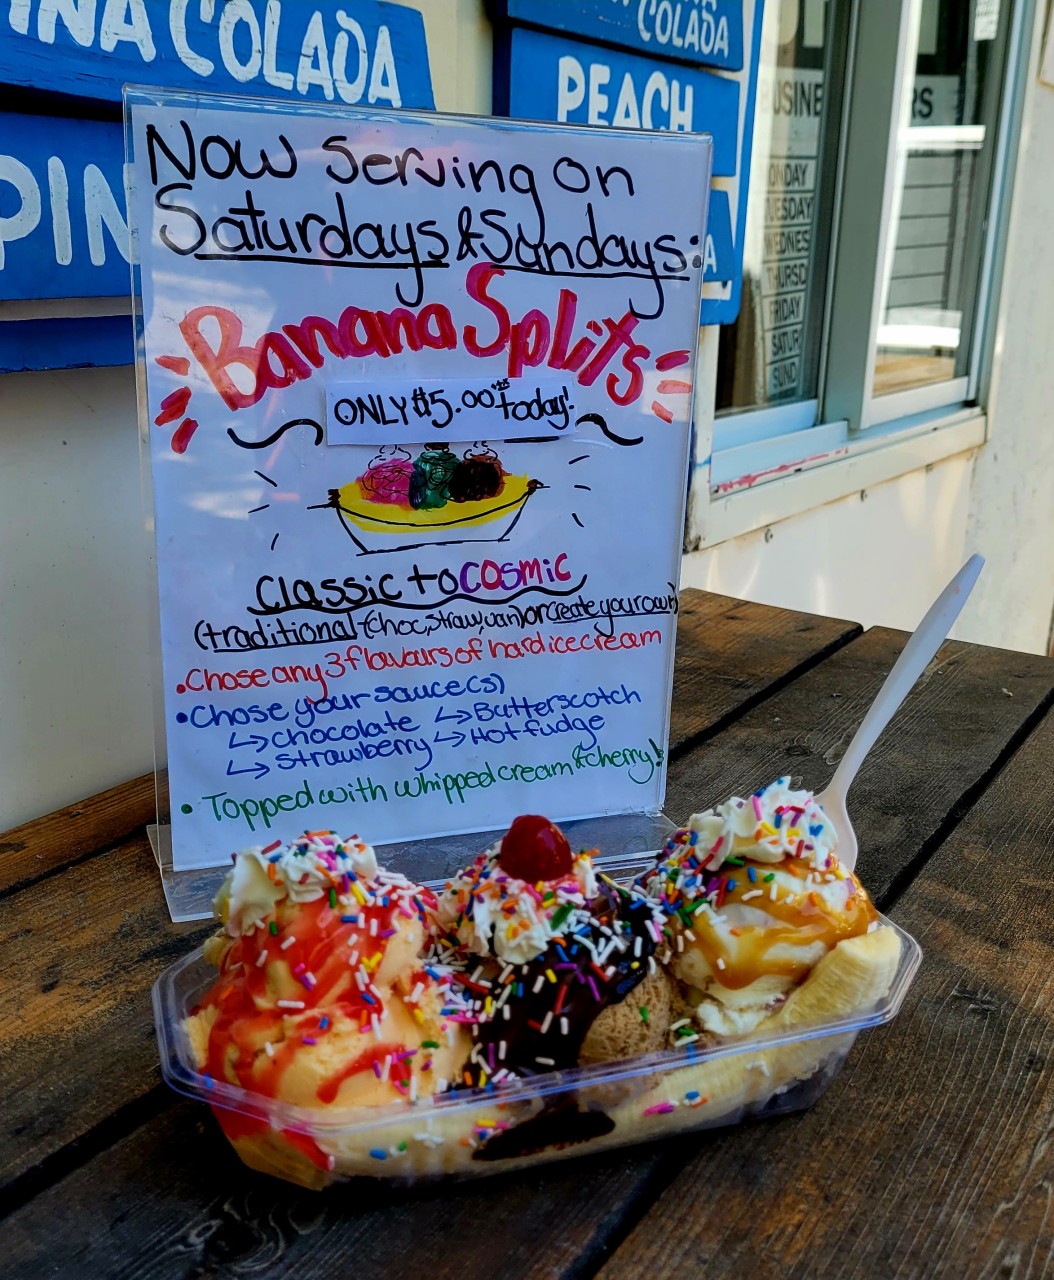 COLADA
COLADA
PEACH
PIN
Now serving on
Saturdays & Sundays:
Banana Splits
ONLY $5.00 today!
Classic to cosmic
(traditional-(choc, straw, van) or create your own)
• Chose any 3 flavours of hard ice cream
• Chose your sauce(s)
↳ chocolate ↳ Butterscotch
↳ strawberry ↳ Hot fudge
• Topped with whipped cream & cherry!
BUSINE RS
ONDAY
UESDAY
WEDNES
THURSD
FRIDAY
SATUR
SUND